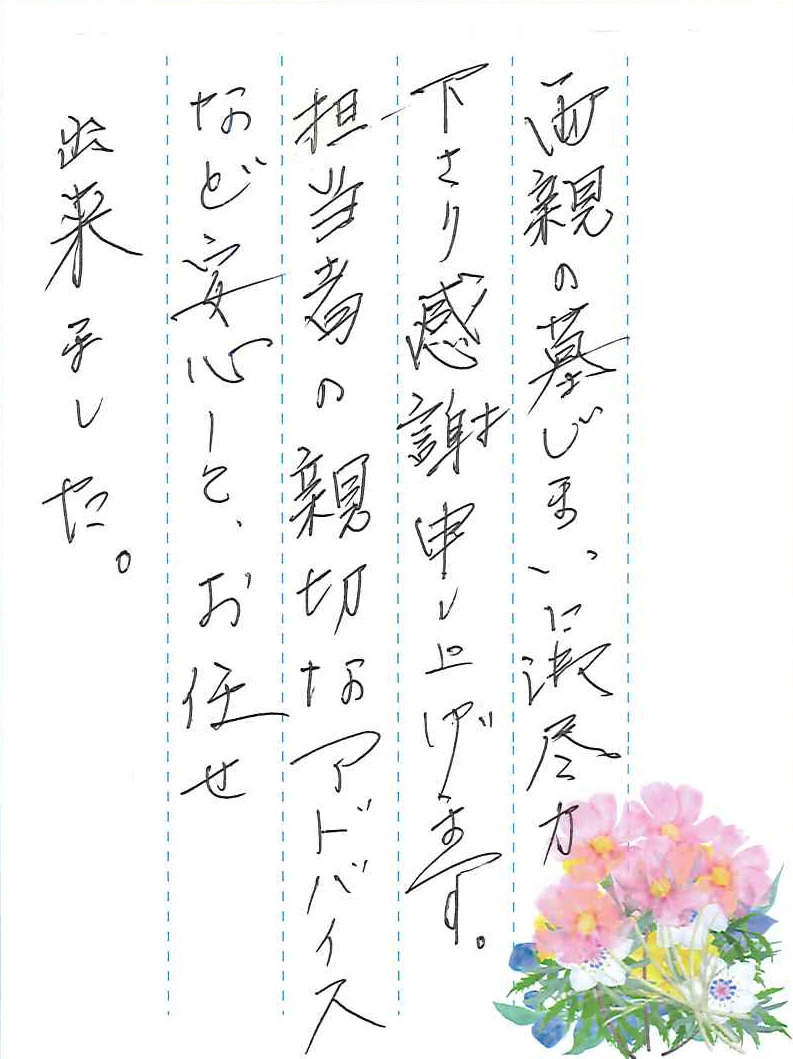 両親の墓じまいに御尽力
下さり感謝申し上げます。
担当者の親切なアドバイス
など安心して、お任せ
出来ました。